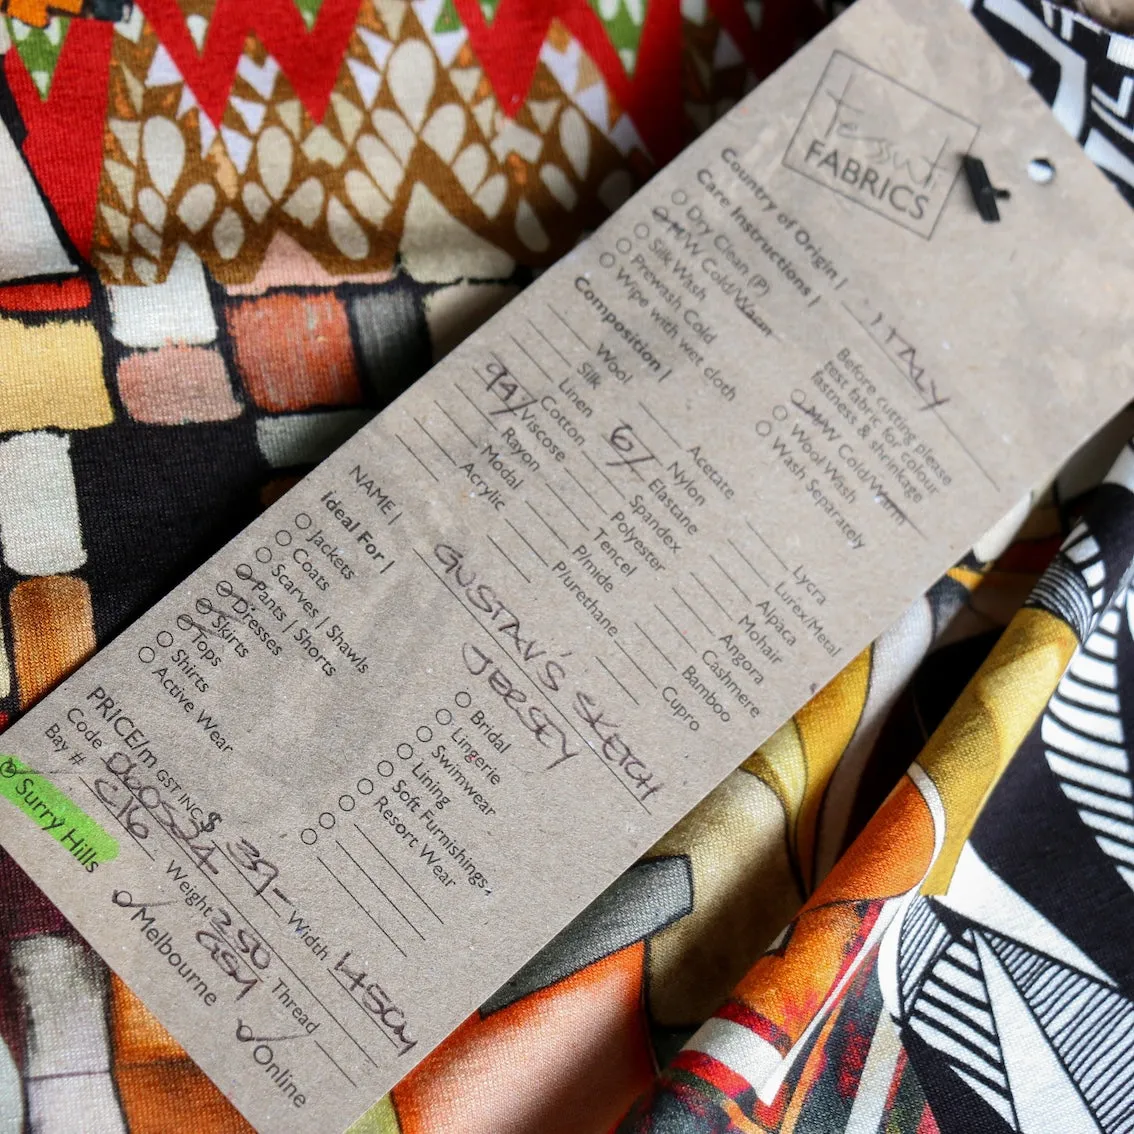 Tessuti
FABRICS
Country of Origin | ITALY
Care Instructions |
Dry Clean (P)
M/W Cold/Warm
Silk Wash
Prewash Cold
Wipe with wet cloth
Before cutting please
test fabric for colour
fastness & shrinkage
H/W Cold/Warm
Wool Wash
Wash Separately
Composition |
Wool
Silk
Linen
Cotton
94% Viscose
Rayon
Modal
Acrylic
Acetate
Nylon
6% Elastane
Spandex
Polyester
Tencel
P/mide
P/urethane
Lycra
Lurex/Metal
Alpaca
Mohair
Angora
Cashmere
Bamboo
Cupro
NAME | GUSTAV'S SKETCH
JERSEY
Ideal For |
Jackets
Coats
Scarves | Shawls
Pants | Shorts
Dresses
Skirts
Tops
Shirts
Active Wear
Bridal
Lingerie
Swimwear
Lining
Soft Furnishings
Resort Wear
PRICE/m GST INC $ 39- Width 145cm
Code Weight 250 GSM Thread
Bay # C16
Surry Hills
Melbourne
Online